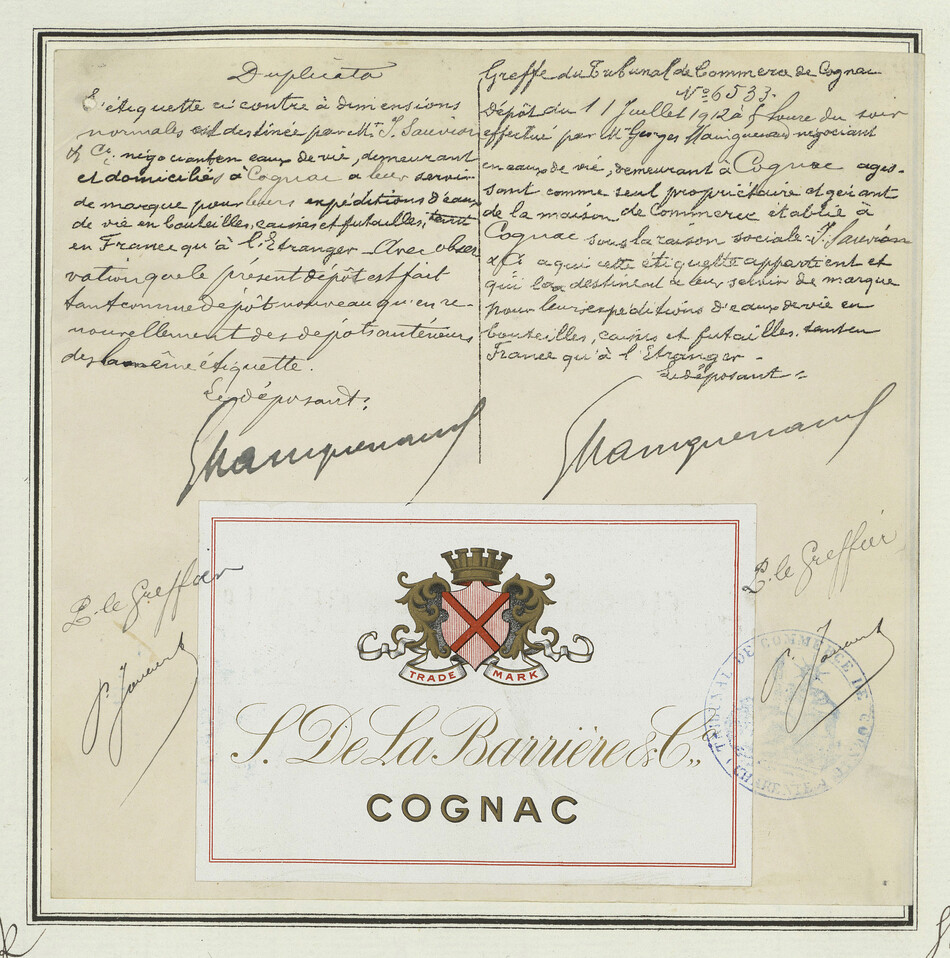 Duplicata
L'étiquette ci contre à dimensions
normales est destinée par Mr. J. Sauvion
& Cie négociant en eaux de vie, demeurant
et domiciliés à Cognac a leur servir
de marque pour leurs expéditions d'eaux
de vie en bouteilles, caisses et futailles, tant
en France qu'à l'Etranger _ Avec obser
vation que le présent dépôt est fait
tant comme dépôt nouveau qu'en re-
nouvellement des dépots antérieurs
de la même étiquette.
Le déposant:
Greffe du Tribunal de Commerce de Cognac
No 6533.
Dépôt du 11 Juillet 1912 à 5 heure du soir
effectué par Mr Georges négociant
en eaux de vie, demeurant à Cognac agis-
sant comme seul propriétaire et gérant
de la maison de Commerce établie à
Cognac sous la raison sociale J. Sauvion
& Co a qui cette étiquette appartient et
qui la destinent a leur servir de marque
pour leurs expéditions d'eaux de vie en
bouteilles, caisses et futailles. tant en
France qu'à l'Etranger _
Le déposant =
P. le Greffier
P. le Greffier
TRADE MARK
S. De La Barrière & Co,,
COGNAC
TRIBUNAL DE COMMERCE DE COGNAC
(CHARENTE)